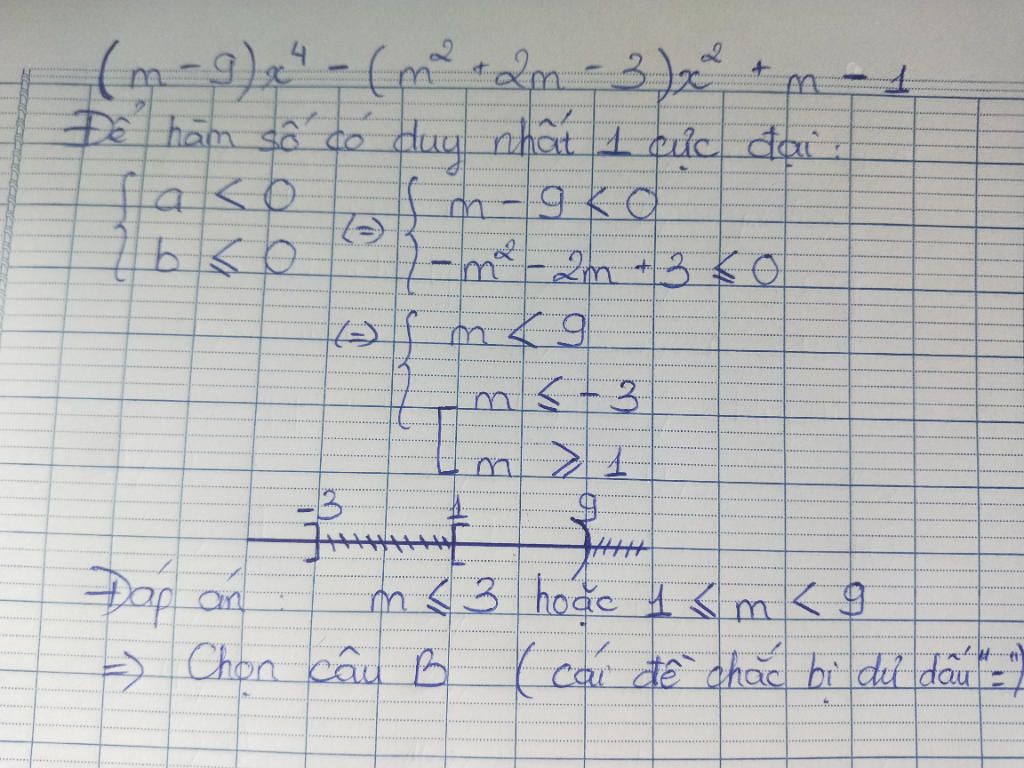 (m - 9)x⁴ - (m² + 2m - 3)x² + m - 1
Để hàm số có duy nhất 1 cực đại:
{ a < 0 (=) { m - 9 < 0
{ b ⩽ 0 { -m² - 2m + 3 ⩽ 0
(=) { m < 9
[ m ⩽ -3
[ m ⩾ 1
-3 1 9
Đáp án: m ⩽ 3 hoặc 1 ⩽ m < 9
=> Chọn câu B (cái đề chắc bị dư dấu "=")